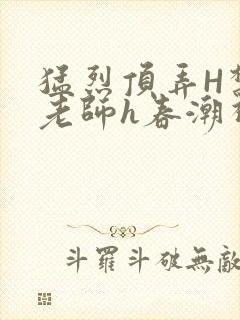 猛烈頂弄H
老師h春潮
斗羅斗破無敵